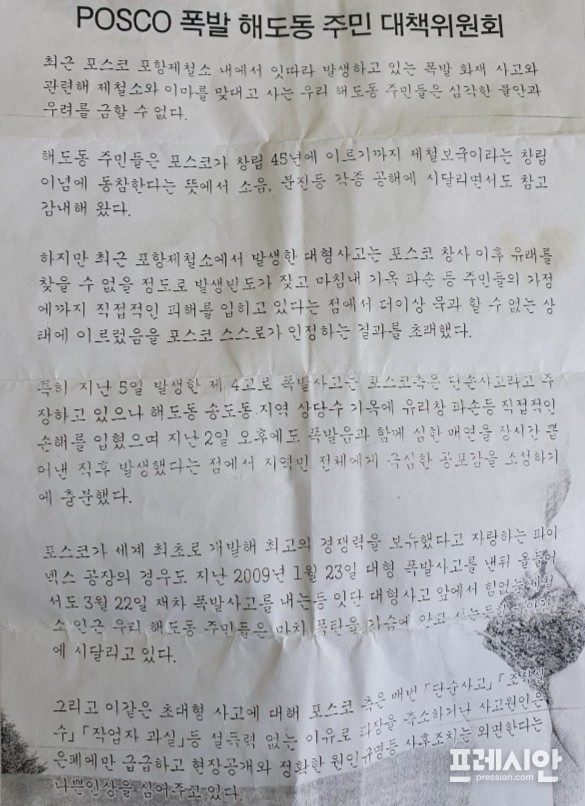 POSCO 폭발 해도동 주민 대책위원회
최근 포스코 포항제철소 내에서 잇따라 발생하고 있는 폭발 화재 사고와
관련해 제철소와 이마를 맞대고 사는 우리 해도동 주민들은 심각한 불안과
우려를 금할 수 없다.
해도동 주민들은 포스코가 창립 45년에 이르기까지 제철보국이라는 창립
이념에 동참한다는 뜻에서 소음, 분진등 각종 공해에 시달리면서도 참고
감내해 왔다.
하지만 최근 포항제철소에서 발생한 대형사고는 포스코 창사 이후 유래를
찾을 수 없을 정도로 발생빈도가 잦고 마침내 가옥 파손 등 주민들의 가정
에까지 직접적인 피해를 입히고 있다는 점에서 더이상 묵과 할 수 없는 상
태에 이르렀음을 포스코 스스로가 인정하는 결과를 초래했다.
특히 지난 5일 발생한 제 4고로 폭발사고는 포스코측은 단순사고라고 주
장하고 있으나 해도동 송도동 지역 상당수 가옥에 유리창 파손등 직접적인
손해를 입혔으며 지난 2일 오후에도 폭발음과 함께 심한 매연을 장시간 뿜
어낸 직후 발생했다는 점에서 지역민 전체에게 극심한 공포감을 조성하기
에 충분했다.
포스코가 세계 최초로 개발해 최고의 경쟁력을 보유했다고 자랑하는 파이
넥스 공장의 경우도 지난 2009년 1월 23일 대형 폭발사고를 낸뒤 올들어
서도 3월 22일 재차 폭발사고를 내는등 잇단 대형사고 앞에서
소 인근 우리 해도동 주민들은 마치 폭탄을 가슴에 안고 사는듯한
에 시달리고 있다.
그리고 이같은 초대형 사고에 대해 포스코 측은 매번 「단순사고」「조작실
수」「작업자 과실」등 설득력 없는 이유로 파장을 축소하거나 사고원인은
은폐에만 급급하고 현장공개와 정확한 원인규명등 사후조치는 외면한다는
나쁜인상을 심어주고 있다.
프레시안
pressian.com